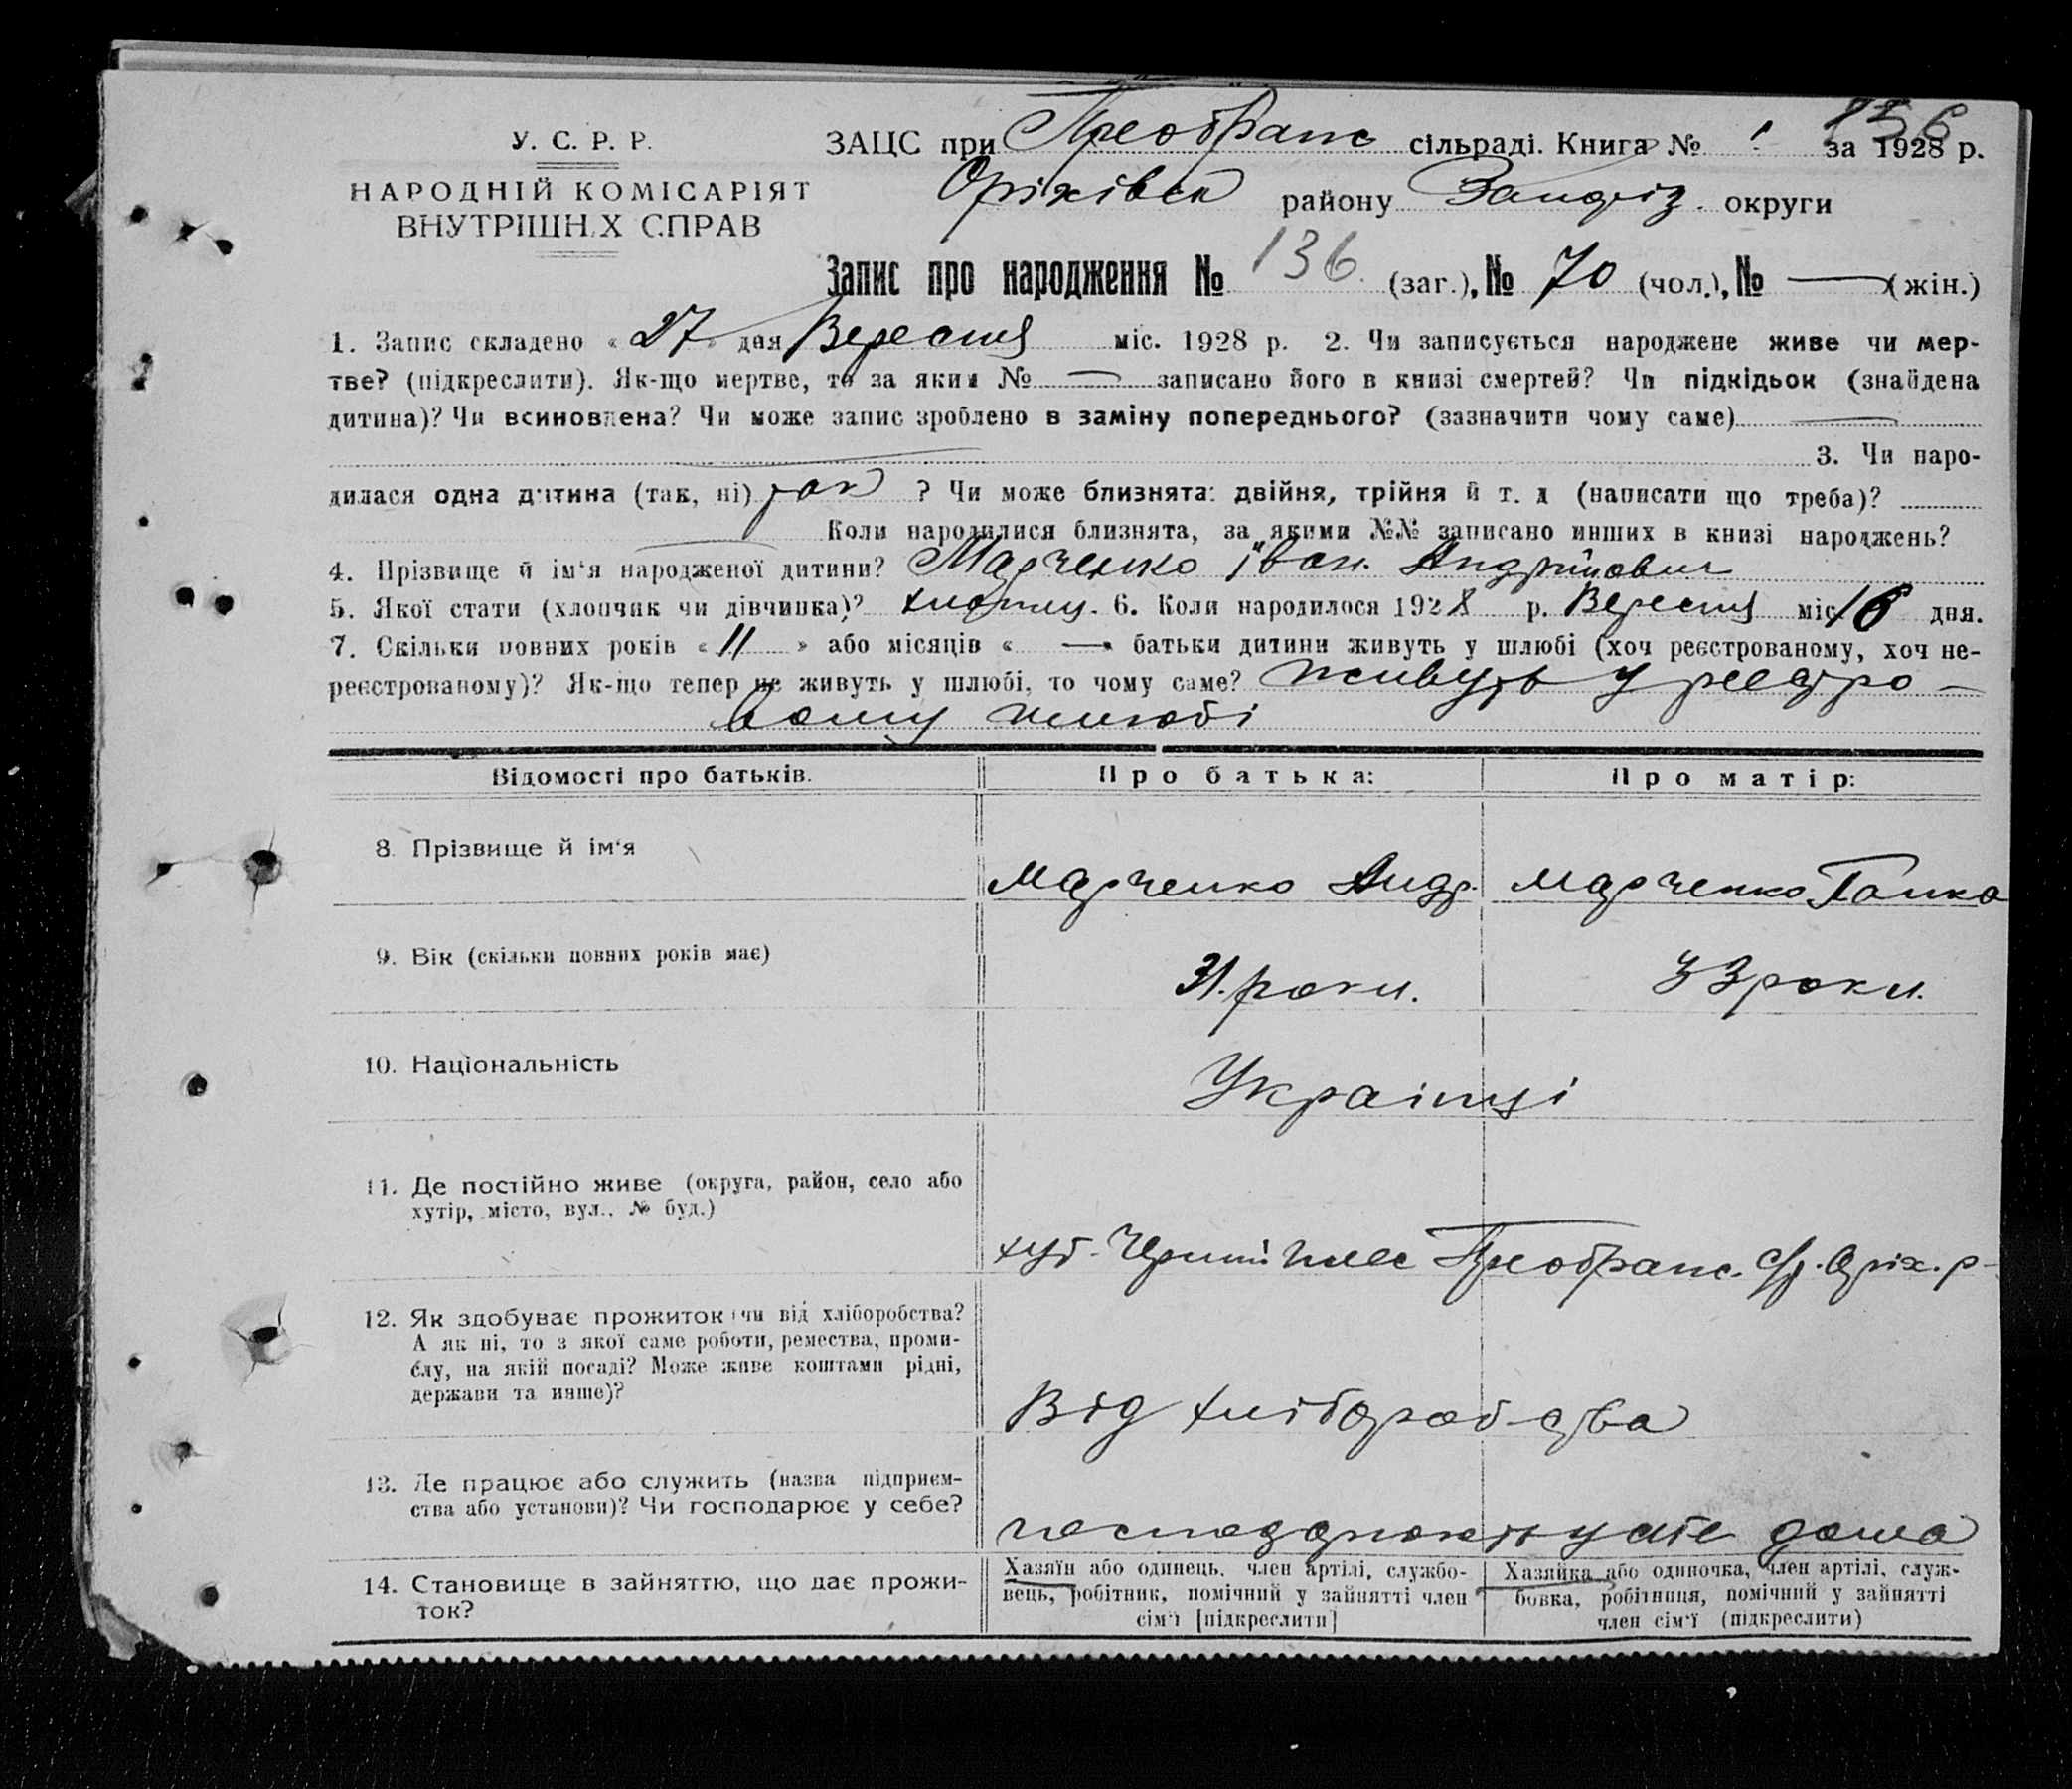 136
У. С. Р. Р.
ЗАЦС при Преображ сільраді. Книга № 1 за 1928 р.
НАРОДНІЙ КОМІСАРІЯТ
Оріхівськ району Запоріз. округи
ВНУТРІШНІХ СПРАВ
Запис про народження № 136 (заг.), № 70 (чол.), № — (жін.)
1. Запис складено « 27 » дня Вересня міс. 1928 р. 2. Чи записується народжене живе чи мер-
тве? (підкреслити). Як-що мертве, то за яким № — записано його в книзі смертей? Чи підкідьок (знайдена
дитина)? Чи всиновлена? Чи може запис зроблено в заміну попереднього? (зазначити чому саме) —
3. Чи наро-
дилася одна дитина (так, ні) так ? Чи може близнята: двійня, трійня й т. д (написати що треба)?
— Коли народилися близнята, за якими №№ записано инших в книзі народжень?
4. Прізвище й ім‘я народженої дитини? Марченко Іван Андрійович
5. Якої стати (хлопчик чи дівчинка)? хлопчи. 6. Коли народилося 1928 р. Вересня міс 16 дня.
7. Скільки повних років « 11 » або місяців « — » батьки дитини живуть у шлюбі (хоч реєстрованому, хоч не-
реєстрованому)? Як-що тепер не живуть у шлюбі, то чому саме? живуть у реєстро-
вому шлюбі
Відомості про батьків. Про батька: Про матір:
8. Прізвище й ім‘я Марченко Андр. Марченко Ганка
9. Вік (скільки повних років має) 31. роки. 33 роки.
10. Національність Українці
11. Де постійно живе (округа, район, село або
хутір, місто, вул., № буд.)
хут. Преображ. с/р. Оріх. р-
12. Як здобуває прожиток (чи від хліборобства?
А як ні, то з якої саме роботи, ремества, проми-
слу, на якій посаді? Може живе коштами рідні,
держави та инше)?
Від хліборобства
13. Де працює або служить (назва підприєм-
ства або установи)? Чи господарює у себе?
господарюють у себе дома
14. Становище в зайняттю, що дає прожи-
ток?
Хазяїн або одинець, член артілі, службо-
вець, робітник, помічний у зайнятті член
сім‘ї [підкреслити]
Хазяйка або одиночка, член артілі, служ-
бовка, робітниця, помічний у зайнятті
член сім‘ї (підкреслити)